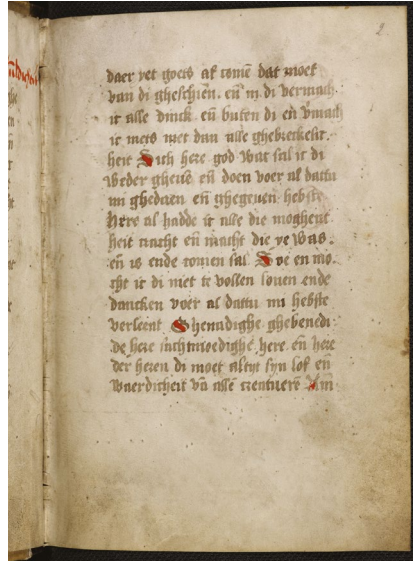 daer yet goets af comē dat moet
van di gheschien. eñ in di vermach
ic alle dinck eñ buten di en v̄mach
ic niets niet dan alle ghebreckelic.
heit Sich here god wat sal ic di
weder gheuē eñ doen voer al dattu
mi ghedaen eñ ghegeuen hebste
Here al hadde ic alle die moghent
heit cracht eñ macht die ye was.
eñ is ende comen sal Soe en mo.
cht ic di niet te vollen louen ende
dancken voer al dattu mi hebste
verleent Ghenadighe ghebenedi
de here sachtmoedighe here eñ here
der heren di moet altijt syn lof eñ
waerdicheit vā allē creatuerē Am̄
2